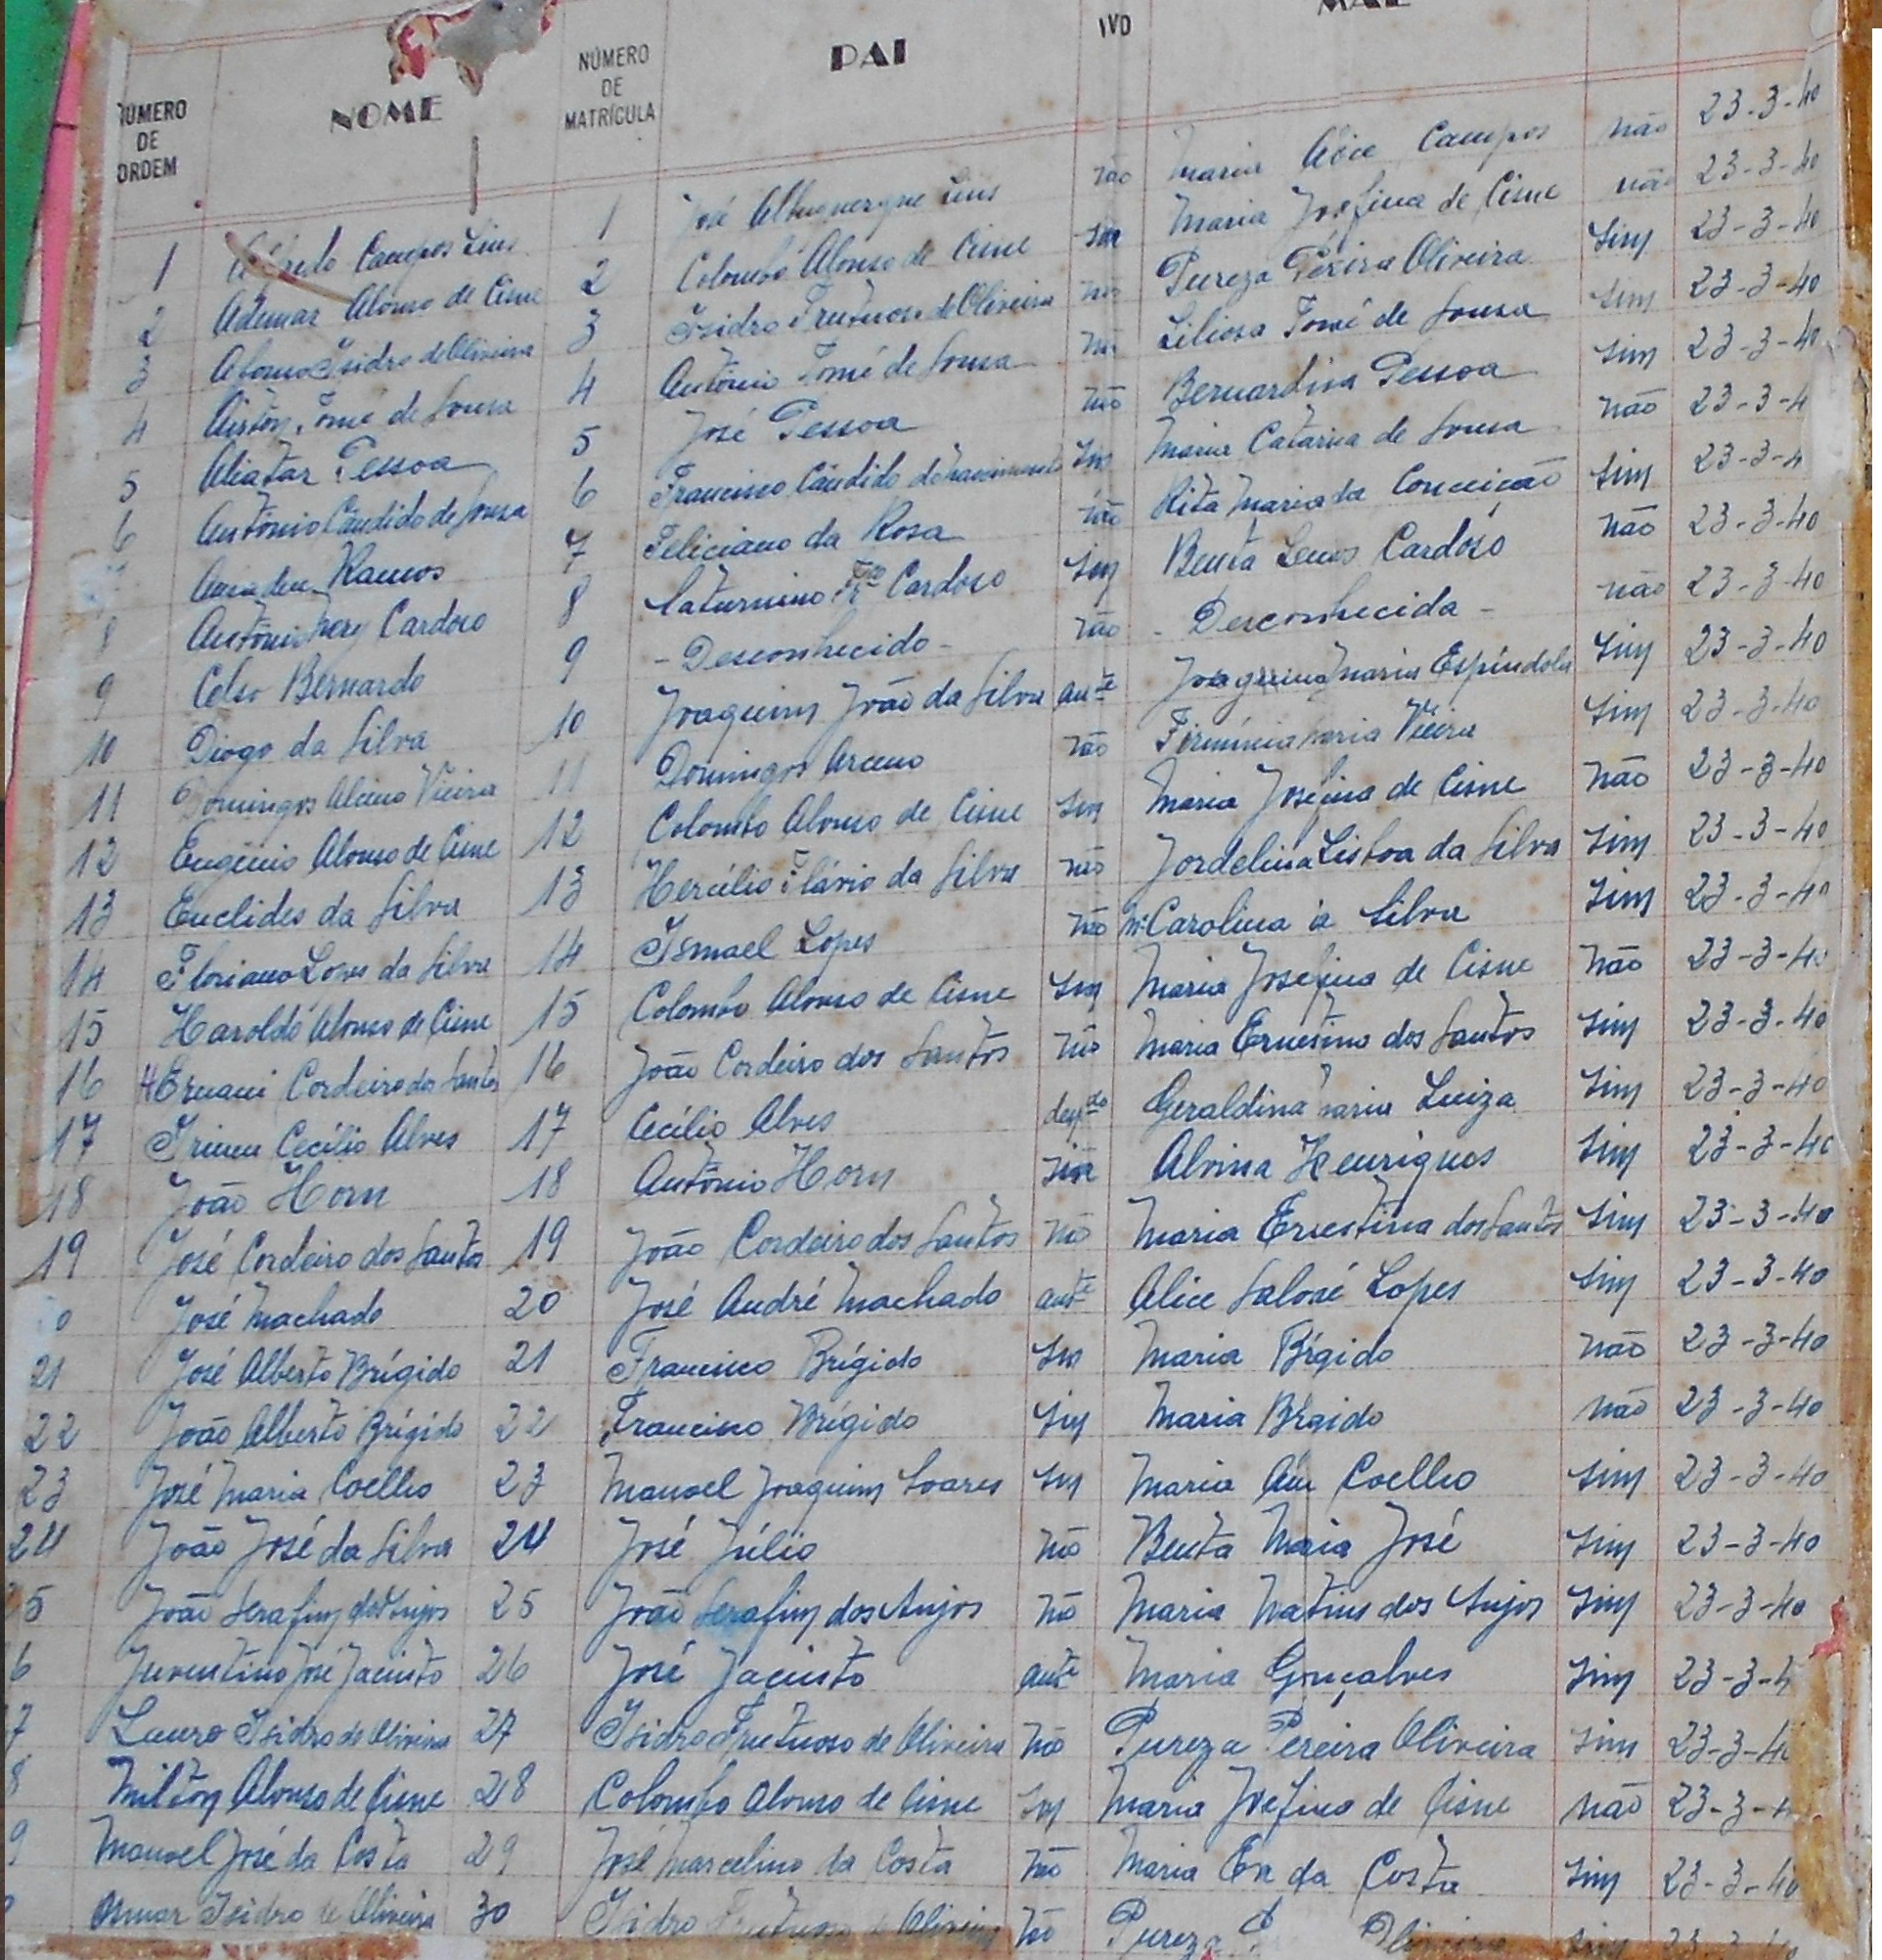 NÚMERO DE ORDEM NOME NÚMERO DE MATRÍCULA PAI IVO MÃE
1 Campos Lins 1 José Albuquerque Lins não Maria Campos não 23-3-40
2 Ademar Alonso de Cisne 2 Colombo Alonso de Cisne sim Maria Josefina de Cisne não 23-3-40
3 Afonso Isidro de Oliveira 3 Isidro Frutuoso de Oliveira não Pureza Pereira Oliveira sim 23-3-40
4 Airton Tomé de Sousa 4 Antônio Tomé de Sousa não Liliosa Tomé de Sousa sim 23-3-40
5 Aliatar Pessoa 5 José Pessoa não Bernardina Pessoa sim 23-3-40
6 Antônio Cândido de Sousa 6 Francisco Cândido do Nascimento sim Maria Catarina de Sousa não 23-3-4
Amadeu Ramos 7 Feliciano da Rosa não Rita Maria da Conceição sim 23-3-4
8 Antônio Nery Cardoso 8 Saturnino Cardoso sim Benta Lemos Cardoso não 23-3-40
9 Celso Bernardo 9 - Desconhecido - não - Desconhecida - não 23-3-40
10 Diogo da Silva 10 Joaquim João da Silva aute Joaquina Maria Espíndola sim 23-3-40
11 Domingos Vieira 11 Domingos Arceno não Firmínia Maria Vieira sim 23-3-40
12 Eugênio Alonso de Cisne 12 Colombo Alonso de Cisne sim Maria Josefina de Cisne não 23-3-40
13 Euclides da Silva 13 Hercílio Flávio da Silva não Jordelina Lisboa da Silva sim 23-3-40
14 Floriano Lopes da Silva 14 Ismael Lopes não Mª Carolina Silva sim 23-3-40
15 Haroldo Alonso de Cisne 15 Colombo Alonso de Cisne sim Maria Josefina de Cisne não 23-3-40
16 HErnani Cordeiro dos Santos 16 João Cordeiro dos Santos não Maria Ernestina dos Santos sim 23-3-40
17 Irineu Cecílio Alves 17 Cecílio Alves Geraldina Maria Luiza sim 23-3-40
18 João Horn 18 Antônio Horn não Alvina Henriques sim 23-3-40
19 José Cordeiro dos Santos 19 João Cordeiro dos Santos não Maria Ernestina dos Santos sim 23-3-40
0 José Machado 20 José André Machado aute Alice Salosé Lopes sim 23-3-40
21 José Alberto Brígido 21 Francisco Brígido sim Maria Brígido não 23-3-40
22 João Alberto Brígido 22 Francisco Brígido sim Maria Brígido não 23-3-40
23 José Maria Coelho 23 Manoel Joaquim Soares sim Maria Coelho sim 23-3-40
24 João José da Silva 24 José Júlio não Benta Maria José sim 23-3-40
25 João Serafim dos Anjos 25 João Serafim dos Anjos não Maria Martins dos Anjos sim 23-3-40
6 Juventino José Jacinto 26 José Jacinto aute Maria Gonçalves sim 23-3-4
7 Lauro Isidro de Oliveira 27 Isidro Frutuoso de Oliveira não Pureza Pereira Oliveira sim 23-3-40
8 Milton Alonso de Cisne 28 Colombo Alonso de Cisne sim Maria Josefina de Cisne não 23-3-4
9 Manoel José da Costa 29 José Marcelino da Costa não Maria da Costa sim 23-3-40
Osmar Isidro de Oliveira 30 Isidro Frutuoso de Oliveira não Pureza P Oliveira sim 23-3-40